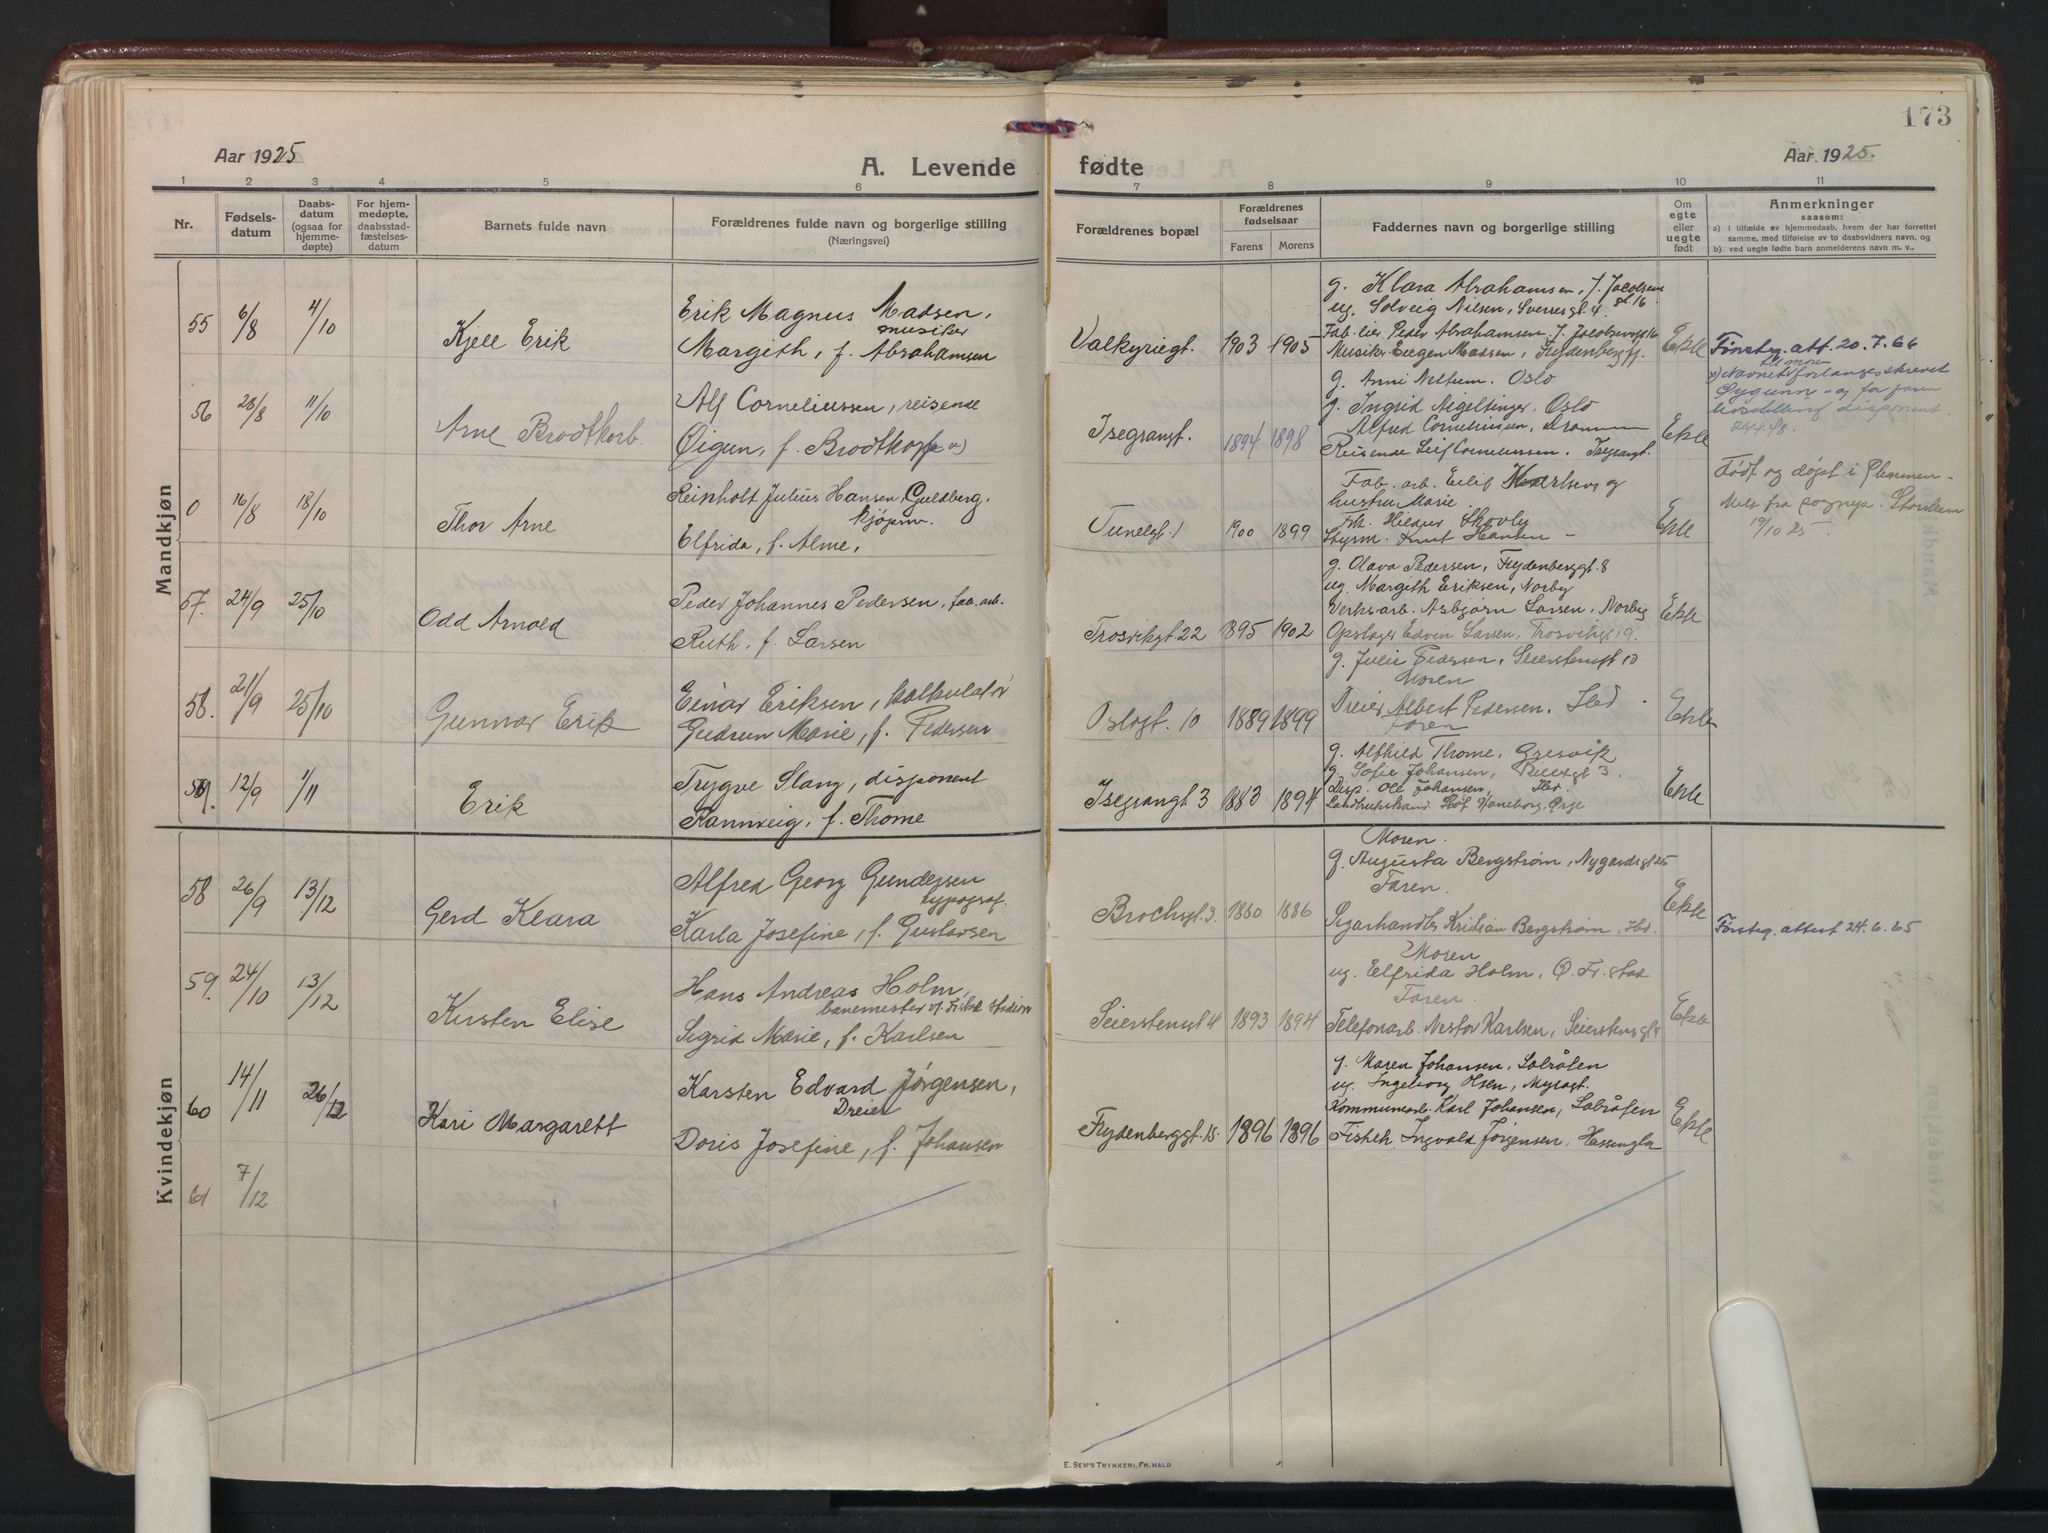 173
Aar 1925
A. Levende
fødte
Aar 1925.
1 2 3 4 5 6 7 8 9 10 11
Nr.
Fødsels-
datum
Daabs-
datum
(ogsaa for
hjemme-
døpte)
For hjem-
medøpte,
daabsstad-
fæstelses-
datum
Barnets fulde navn
Forældrenes fulde navn og borgerlige stilling
(Næringsvei)
Forældrenes bopæl
Forældrenes
fødselsaar
Farens
Morens
Faddernes navn og borgerlige stilling
Om
egte
eller
uegte
født
Anmerkninger
saasom:
a) i tilfælde av hjemmedaab, hvem der har forrettet
samme, med tilføielse av to daabsvidners navn, og
b) ved uegte fødte barn anmelderens navn m. v..
Mandkjøn
55 6/8 4/10
Kjell Erik
Erik Magnus Madsen,
musiker
Margith, f. Abrahamsen
Valkyriegt. 1903 1905
g. Klara Abrahamsen, J. Jacobsens
gt 16.
ug. Solveig Nilsen, Sverresgt. 4.
Fab.eier Peder Abrahamsen. J. Jacobsensgt 16
Musiker Eugen Madsen, Frydenberggt.
Ekte
Fønsteg. att. 20.7.66
56 28/8 11/10
Arne Brodtkorb.
Alf Corneliussen, reisende
Øigun, f. Brodtkorb x)
Isegrangt. 1894 1898
g. Anni Netlum. Oslo
g. Ingrid Nigeltinger. Oslo
Alfred Corneliussen, Drammen
Reisende Leif Corneliussen. Isegrangt.
Ekte
til moren
x) Navnet forlanges skrevet
Øygunn - og for faren
livsstilling disponent.
24.4.48.
0 16/8 18/10
Thor Arne
Reinholt Julius Hansen Guldberg.
kjøpm.
Elfrida, f. Alme,
Tunelgt. 1 1900 1899
Fab. arb. Eilif Karlsen og
hustru Marie
Frk. Hildur Skovly
Styrm. Knut Hansen -
Ekte
Født og døpt i Glemmen -
Meld. fra sognepr. Storslem
19/10 25
57. 24/9 25/10
Odd Arnold
Peder Johannes Pedersen, fab. arb.
Ruth, f. Larsen
Trosvikgt 22 1895 1902
g. Olava Pedersen, Frydenberggt. 8
ug. Margith Eriksen, Norby
Verksarb. Asbjørn Larsen, Norby
Opslager Edvin Larsen, Trosvikgt 19.
Ekte
58. 21/9 25/10
Gunnar Erik
Einar Eriksen, kalkulatør
Gudrun Marie, f. Pedersen
Oslogt. 10 1889 1899
g. Julie Pedersen, Seierstensgt 10
Moren
Dreier Albert Pedersen. Ibd.
Faren
Ekte
59. 12/9 1/11
Erik
Trygve Slang, disponent
Rannveig, f. Thome
Isegrangt 3 1883 1894
g. Alfhild Thome, Gresvik
g. Sofie Johansen, 3.
Disp. Ole Johansen, Ibd.
Landbrukskand. Olof Haneborg, Ørje
Ekte
Kvindekjøn
58 26/9 13/12
Gerd Klara
Alfred Georg Gundersen
typograf.
Karla Josefine, f. Gustavsen
Brochsgt. 3. 1880 1886
Moren.
g. Augusta Bergstrøm, Nygardsgt 25
Faren.
Sigarhandler Kristian Bergstrøm, Ibd.
Ekte
Fønsteg. attest 24.6.65
59. 24/10 13/12
Kirsten Elise
Hans Andreas Holm,
banemester v/ Fr.stad Stadion
Sigrid Marie, f. Karlsen
Seierstensgt 4 1893 1894
Moren
ug. Elfrida Holm, Ø. Fr.stad
Faren.
Telefonarb. Nestor Karlsen, Seierstensgt 4
Ekte
60 14/11 26/12
Kari Margarett
Karsten Edvard Jørgensen,
Dreier
Doris Josefine, f. Johansen
Frydenberggt. 15. 1896 1896
g. Maren Johansen, Labråten
ug. Ingeborg Olsen, Myragt.
Kommunearb. Karl Johansen, Labråten
Fisheh. Ingvald Jørgensen, Hessingla
Ekte
61 7/12
E. Sem's Trykkeri, Fr.hald